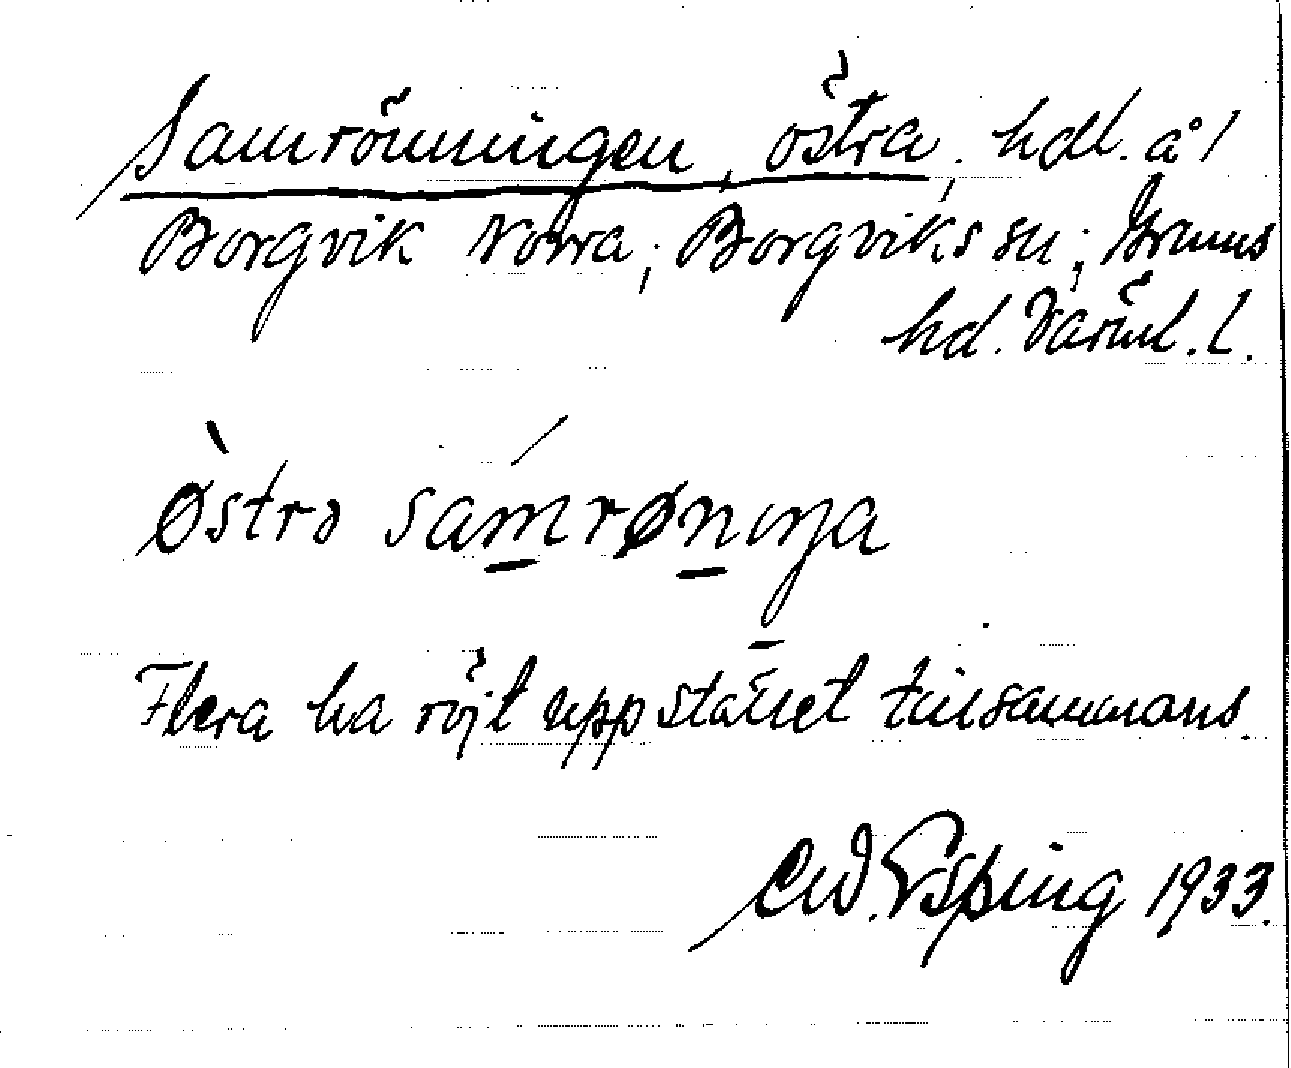 Samrönningen, östra, hdl. å /
Borgvik Norra; Borgviks sn; Grums
hd. Värml. l.
Østrə samrønıŋa
Flera ha röjt upp stället tillsammans.
CW. Esping 1933.